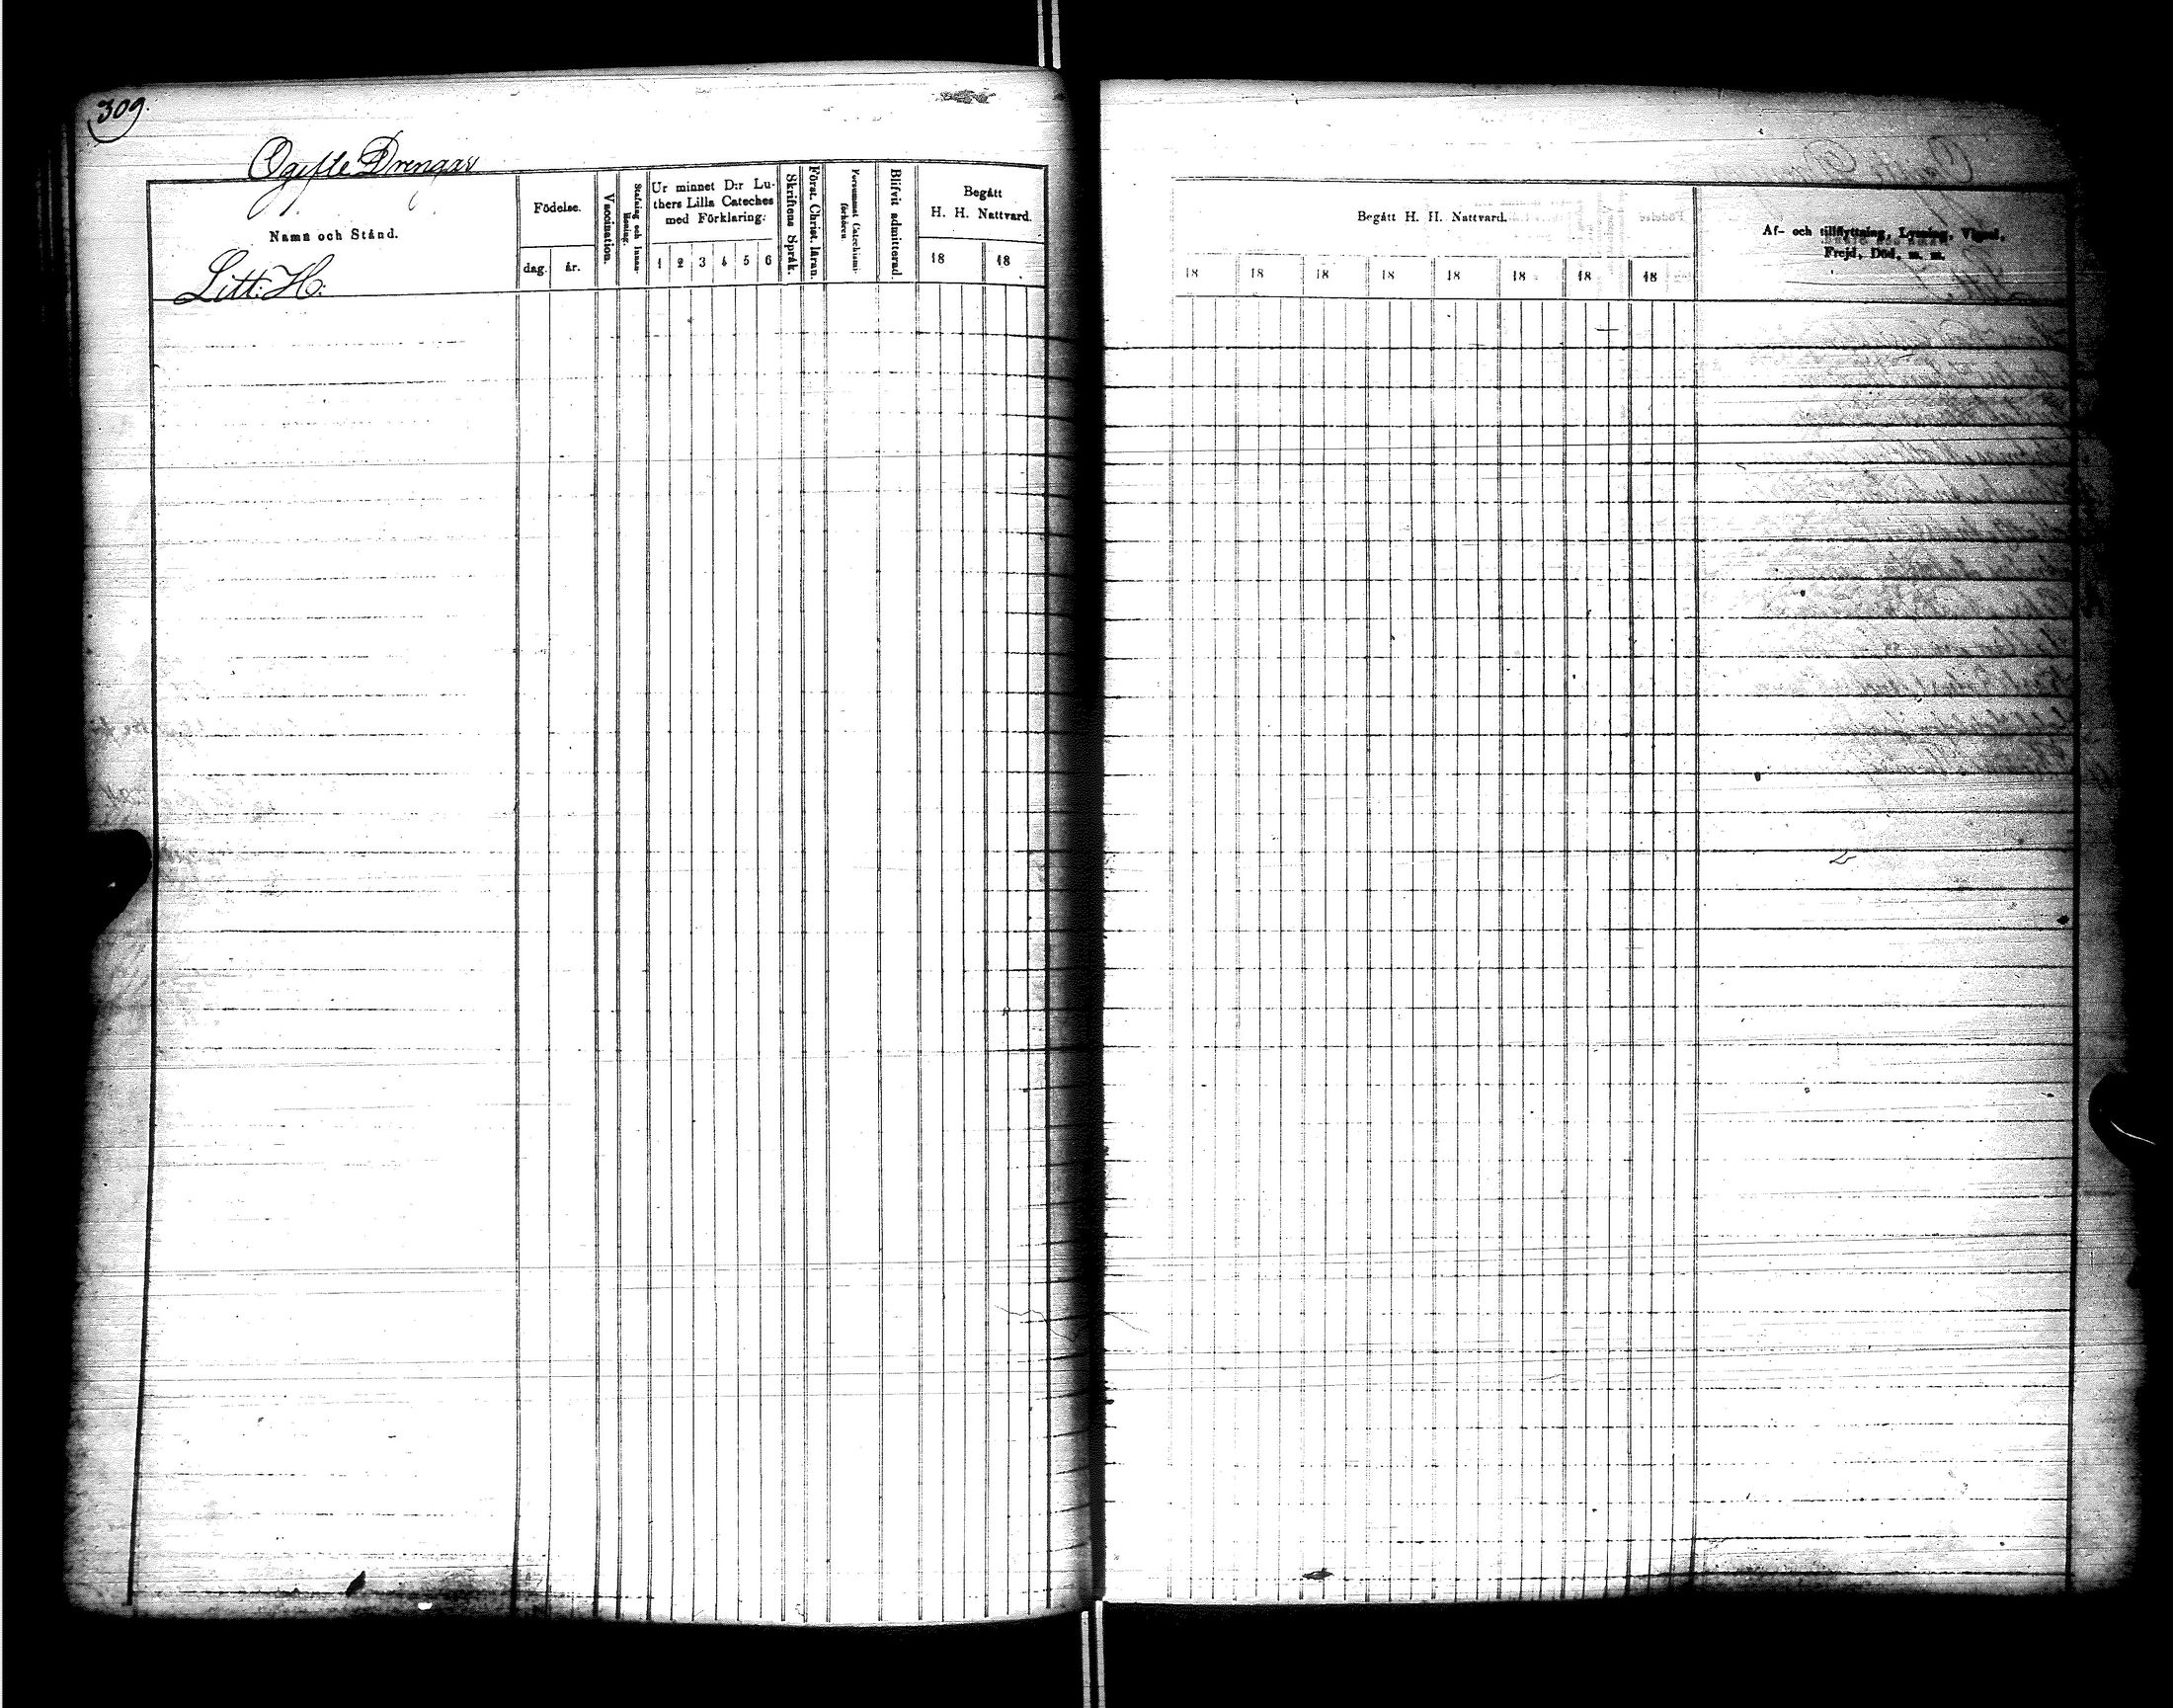 309.
Ogifte Drengar
Namn och Stånd.
Litt: H:
Födelse.
dag. år.
Vaccination.
Stafning och Innan-
läsning.
Ur minnet D:r Lu-
thers Lilla Cateches
med Förklaring:
1 2 3 4 5 6
Skriftens Språk.
Först. Christ. läran.
Försummat Catechismi-
förhören
Blifvit admitterad.
Begått
H. H. Nattvard.
18 18
Begått H. H. Nattvard.
18 18 18 18 18 18 18 18
Af- och tillflyttning, Lysning, Vigsel,
Frejd, Död, m. m.